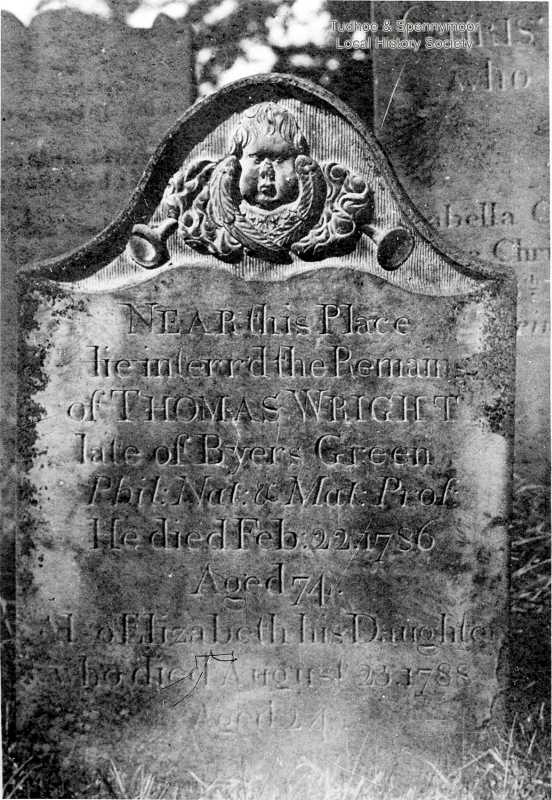 Tudhoe & Spennymoor
Local History Society
RIST
who
abella C
Chri
NEAR this Place
lie interr'd the Remains
of THOMAS WRIGHT
late of Byers Green
Phil: Nat: & Mat: Prof:
He died Feb: 22. 1786
Aged 74.
Al of Elizabeth his Daughter
who died August 23. 1788
Aged 24